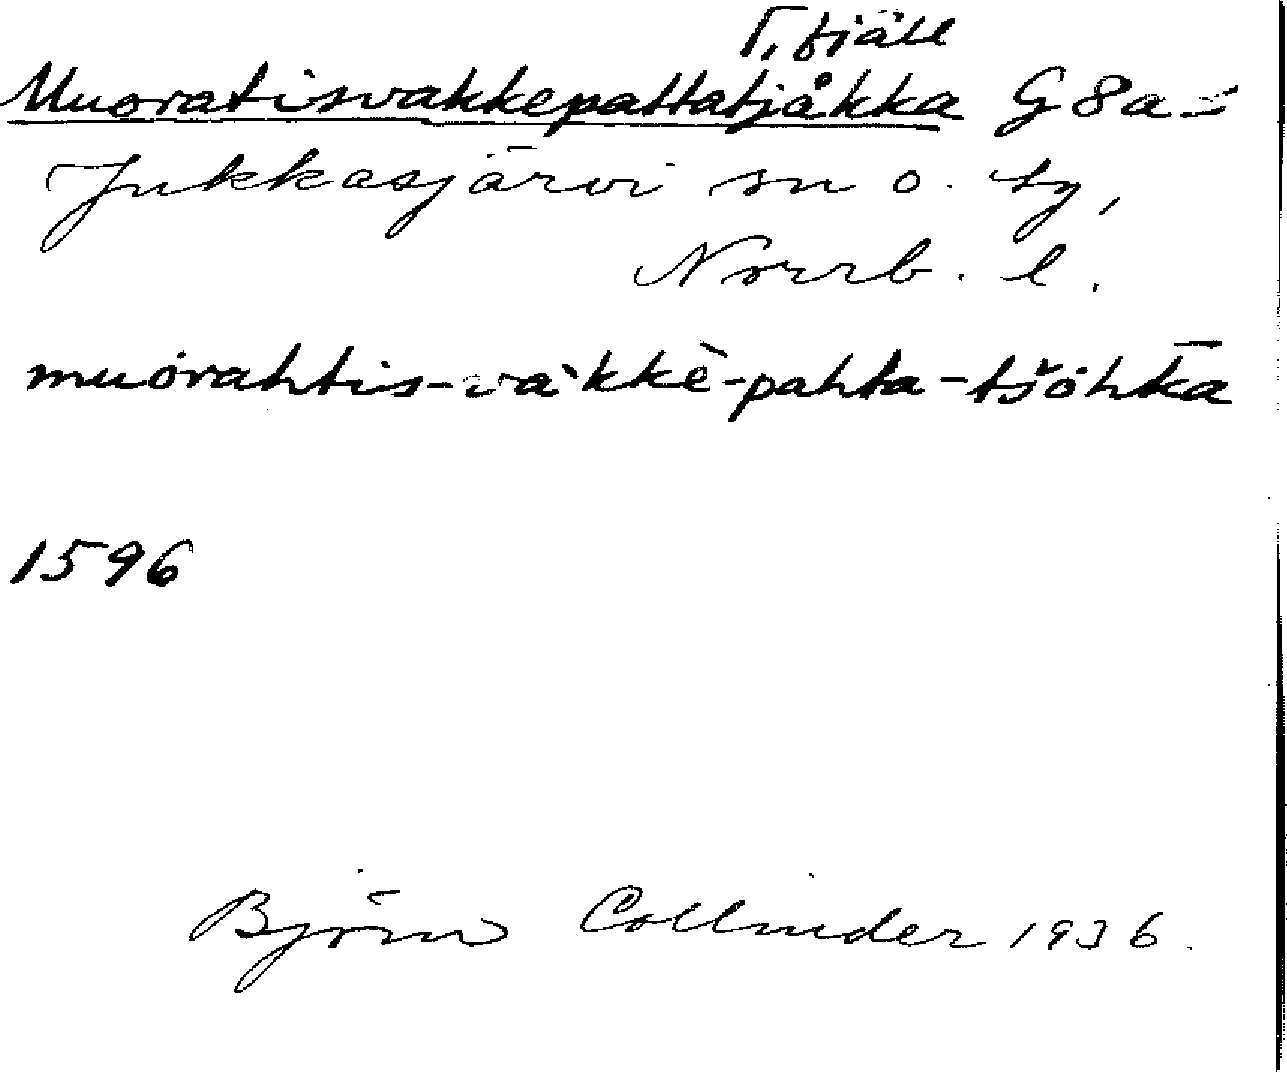 T, fjäll
Muoratisvakkepattatjåkka G8a
Jukkasjärvi sn o. tg,
Norrb. l.
muorahtis-va`kkè-pahta-tšohka
1596
Björn Collinder 1936.